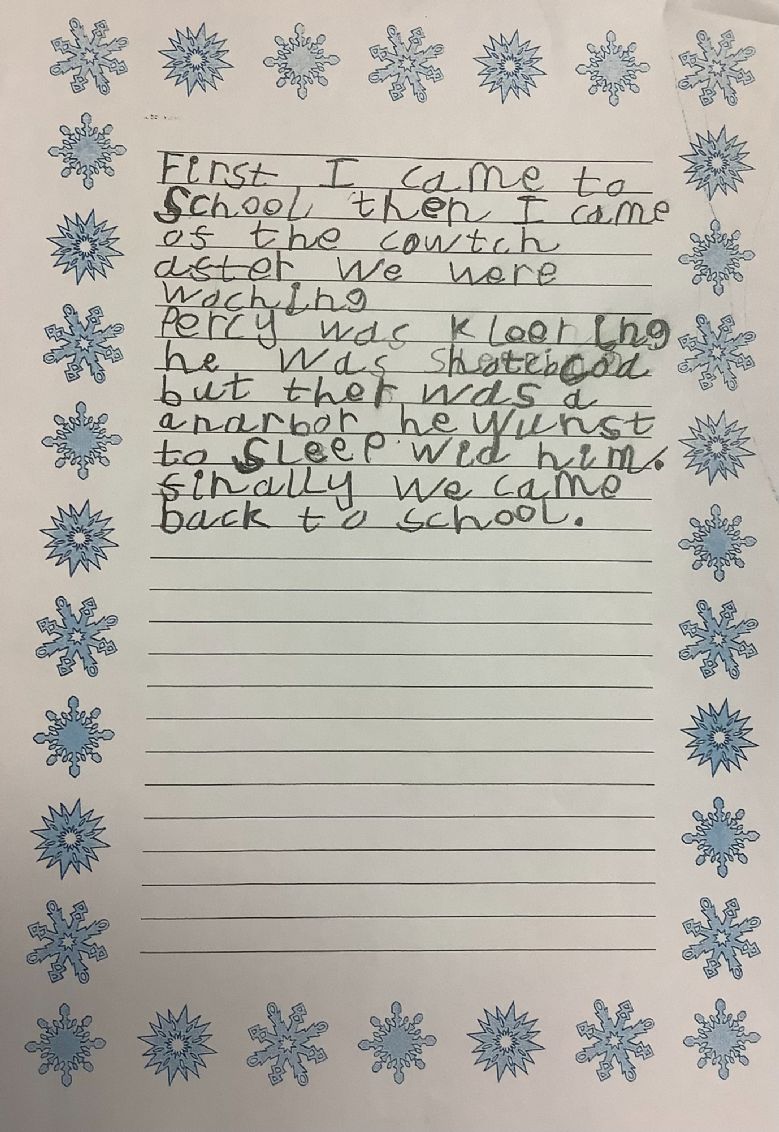 First I came to
School then I came
of the cowtch
after we were
waching
Percy was kloering
he was skatebood
but ther was a
anarbor he wunst
to sleep wid him.
finally we came
back to school.